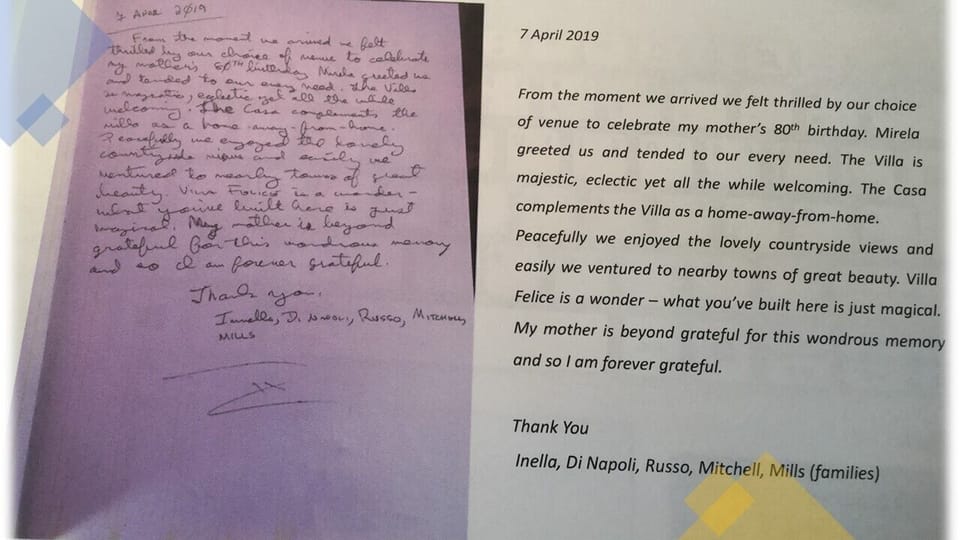 7 APRIL 2019
From the moment we arrived we felt
thrilled by our choice of venue to celebrate
my mother's 80TH birthday. Mirela greeted us
and tended to our every need. The Villa
is majestic, eclectic yet all the while
welcoming. The Casa complements the
Villa as a home-away-from-home.
Peacefully we enjoyed the lovely
countryside views and easily we
ventured to nearby towns of great
beauty. VILLA FELICE is a wonder-
what you've built here is just
magical. My mother is beyond
grateful for this wondrous memory
and so I am forever grateful.
Thank you.
DI NAPOLI, RUSSO, MITCHELL,
MILLS
7 April 2019
From the moment we arrived we felt thrilled by our choice
of venue to celebrate my mother's 80th birthday. Mirela
greeted us and tended to our every need. The Villa is
majestic, eclectic yet all the while welcoming. The Casa
complements the Villa as a home-away-from-home.
Peacefully we enjoyed the lovely countryside views and
easily we ventured to nearby towns of great beauty. Villa
Felice is a wonder – what you've built here is just magical.
My mother is beyond grateful for this wondrous memory
and so I am forever grateful.
Thank You
Inella, Di Napoli, Russo, Mitchell, Mills (families)